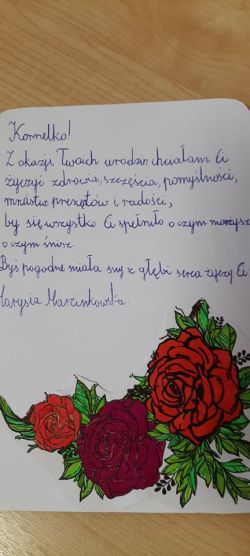 Kornelko!
Z okazji Twoich urodzin chciałam Ci
życzyć zdrowia, szczęścia, pomyślności,
mnóstwo prezętów i radości,
by się wszystko Ci spełniło o czym marzysz
o czym śnisz.
Byś pogodne miała sny z głębi serca życzy Ci
Marysia Marzinkowska.